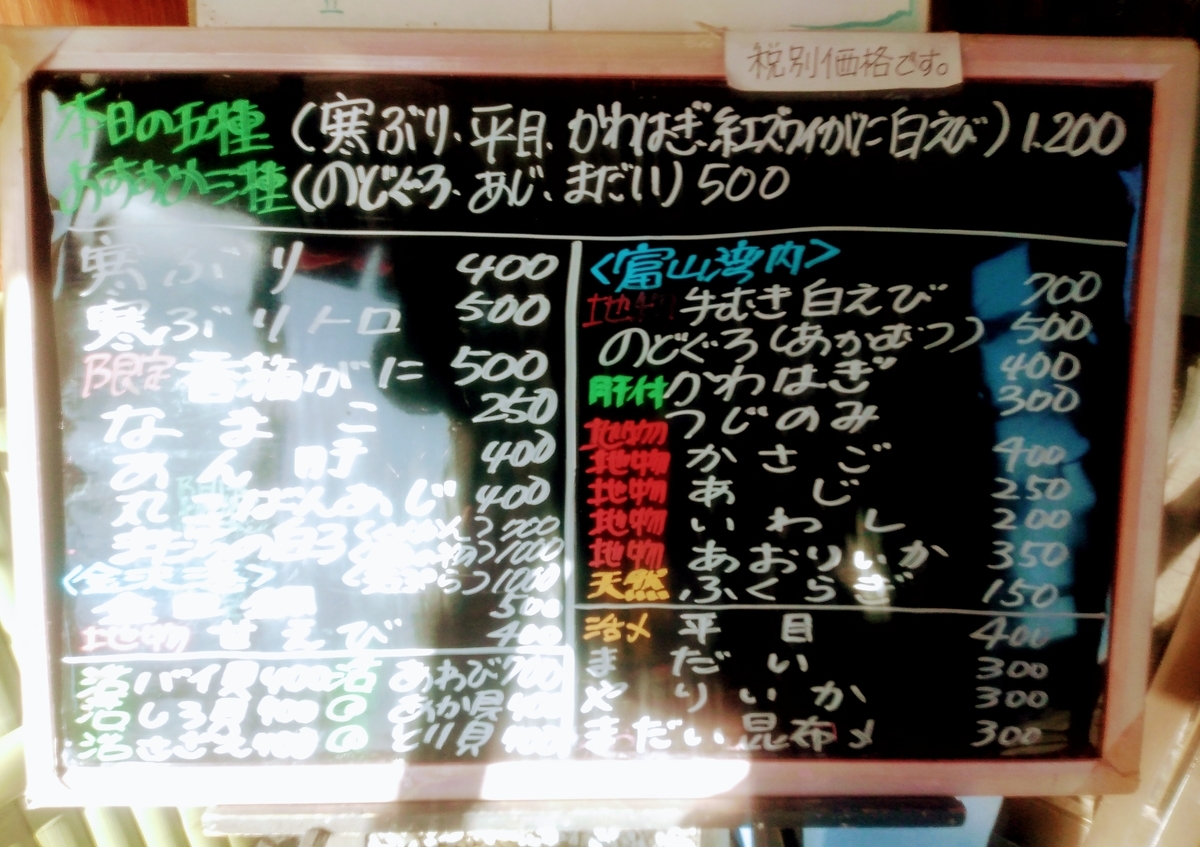 税別価格です。
本日の五種(寒ぶり、平目、かわはぎ、紅ズワイがに白えび)1.200
おすすめ三種(のどぐろ、あじ、まだい)500
寒ぶり 400
寒ぶりトロ 500
限定 香箱がに 500
なまこ 250
あん肝 400
丸 あじ 400
700
1000
1000
500
地物 甘えび 400
活バイ貝400 活あわび700
活しろ貝400 あか貝
活さざえ400 とり貝
<富山湾内>
地物 生むき白えび 700
のどぐろ(あかむつ) 500
肝付かわはぎ 400
地物 つじのみ 300
地物 かさご 400
地物 あじ 250
地物 いわし 200
地物 あおりいか 350
天然 ふくらぎ 150
活〆 平目 400
まだい 300
やりいか 300
まだい昆布〆 300